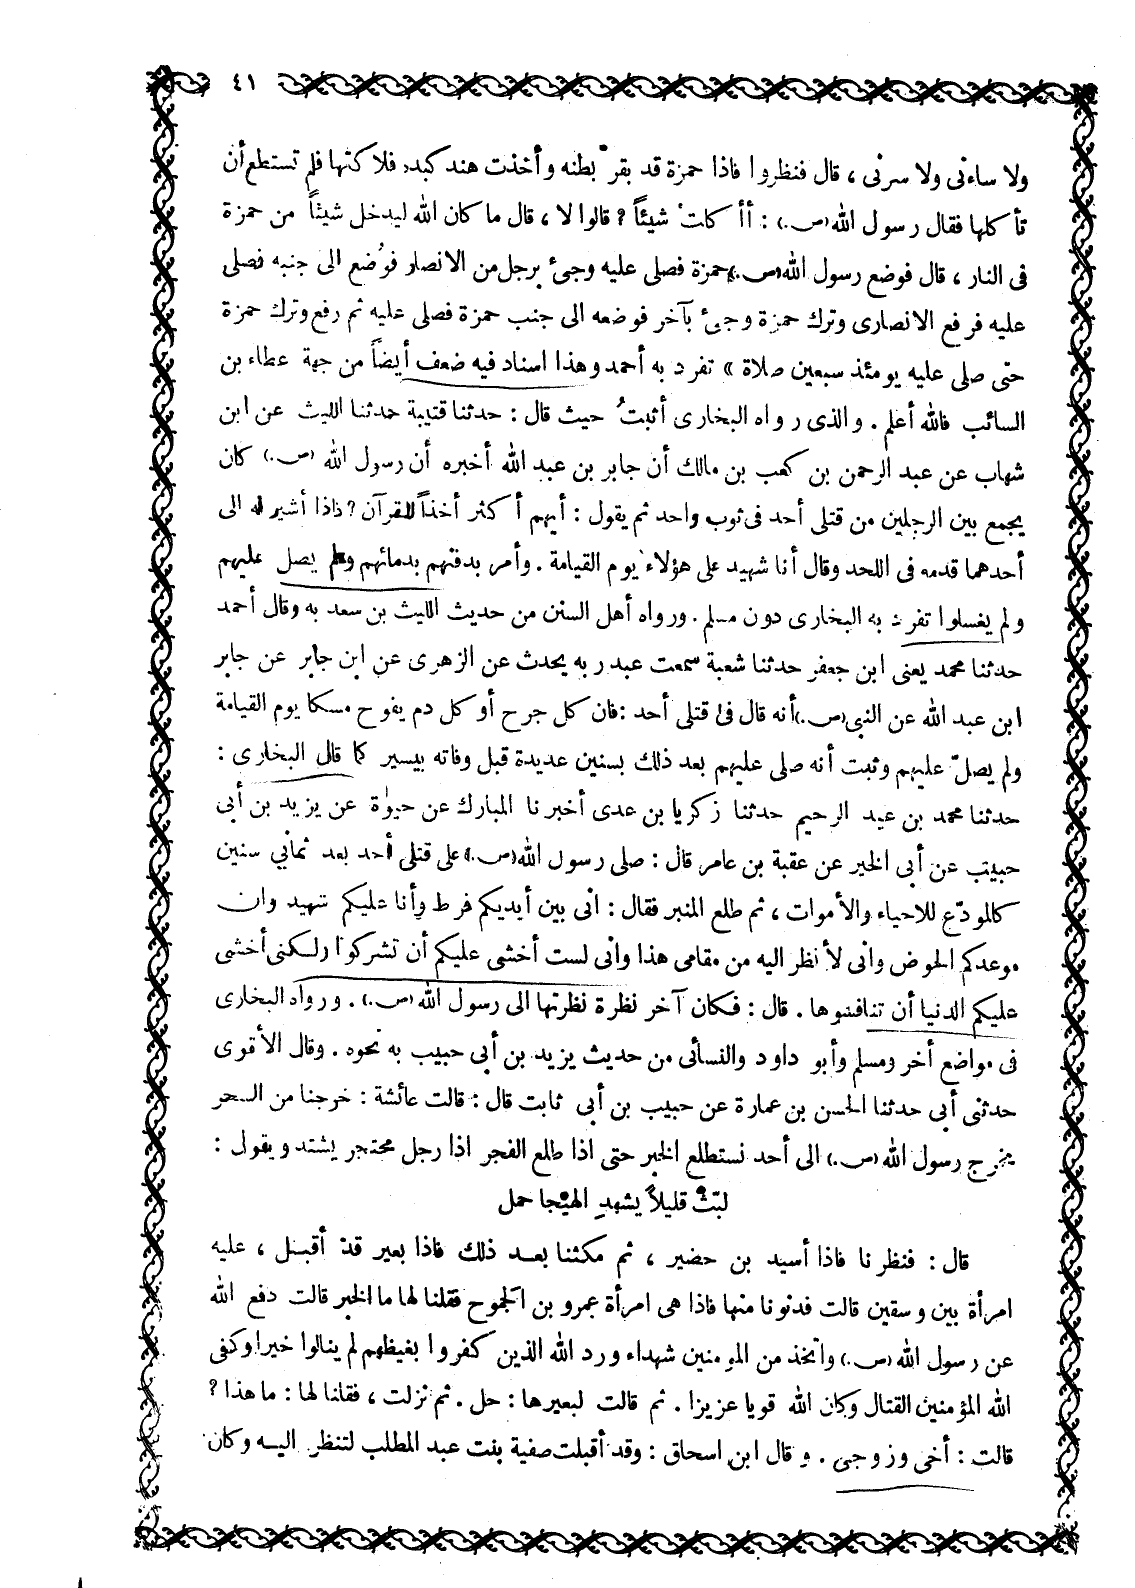 ٤١
ولا ساءنى ولا سرنى ، قال فنظروا فاذا حمزة قد بقر بطنه وأخذت هند كبده فلاكتها فلم تستطع أن
تأكلها فقال رسول الله (ص.) : أأكلت شيئاً ? قالوا لا ، قال ما كان الله ليدخل شيئاً من حمزة
فى النار ، قال فوضع رسول الله (ص.) حمزة فصلى عليه وجىء برجل من الانصار فوُضع الى جنبه فصلى
عليه فرفع الانصارى وترك حمزة وجىء بآخر فوضعه الى جنب حمزة فصلى عليه ثم رفع وترك حمزة
حتى صلى عليه يومئذ سبعين صلاة » تفرد به أحمد وهذا اسناد فيه ضعف أيضاً من جهة عطاء بن
السائب فالله أعلم . والذى رواه البخارى أثبتُ حيث قال : حدثنا قتيبة حدثنا الليث عن ابن
شهاب عن عبد الرحمن بن كعب بن مالك أن جابر بن عبد الله أخبره أن رسول الله (ص.) كان
يجمع بين الرجلين من قتلى أحد فى ثوب واحد ثم يقول : أيهم أكثر أخذاً للقرآن ? فاذا أشير له الى
أحدهما قدمه فى اللحد وقال أنا شهيد على هؤلاء يوم القيامة . وأمر بدفنهم بدمائهم ولم يصل عليهم
ولم يغسلوا تفرد به البخارى دون مسلم . ورواه أهل السنن من حديث الليث بن سعد به وقال أحمد
حدثنا محمد يعنى ابن جعفر حدثنا شعبة سمعت عبد ربه يحدث عن الزهرى عن ابن جابر عن جابر
ابن عبد الله عن النبي (ص.) أنه قال فى قتلى أحد : فان كل جرح أو كل دم يفوح مسكا يوم القيامة
ولم يصلّ عليهم وثبت أنه صلى عليهم بعد ذلك بسنين عديدة قبل وفاته بيسير كما قال البخارى :
حدثنا محمد بن عبد الرحيم حدثنا زكريا بن عدى أخبرنا المبارك عن حيوة عن يزيد بن أبى
حبيب عن أبى الخير عن عقبة بن عامر قال : صلى رسول الله (ص.) على قتلى أحد بعد ثماني سنين
كالمودّع للاحياء والأموات ، ثم طلع المنبر فقال : انى بين أيديكم فرط وأنا عليكم شهيد وان
موعدكم الحوض وانى لأنظر اليه من مقامى هذا وانى لست أخشى عليكم أن تشركوا ولكنى أخشى
عليكم الدنيا أن تنافسوها . قال : فكان آخر نظرة نظرتها الى رسول الله (ص.) . ورواه البخارى
فى مواضع أخر ومسلم وأبو داود والنسائى من حديث يزيد بن أبي حبيب به نحوه . وقال الأقوى
حدثنى أبى حدثنا الحسن بن عمارة عن حبيب بن أبى ثابت قال : قالت عائشة : خرجنا من السحر
مخرج رسول الله (ص.) الى أحد نستطلع الخبر حتى اذا طلع الفجر اذا رجل محتجر يشتد ويقول :
لبّث قليلاً يشهدِ الهيجا حمل
قال : فنظرنا فاذا أسيد بن حضير ، ثم مكثنا بعد ذلك فاذا بعير قد أقبل ، عليه
امرأة بين وسقين قالت فدنونا منها فاذا هى امرأة عمرو بن الجموح فقلنا لها ما الخبر قالت دفع الله
عن رسول الله (ص.) واتخذ من المؤمنين شهداء ورد الله الذين كفروا بغيظهم لم ينالوا خيرا وكفى
الله المؤمنين القتال وكان الله قويا عزيزا . ثم قالت لبعيرها : حل . ثم نزلت ، فقلنا لها : ما هذا ?
قالت : أخى وزوجى . وقال ابن اسحاق : وقد أقبلت صفية بنت عبد المطلب لتنظر اليه وكان